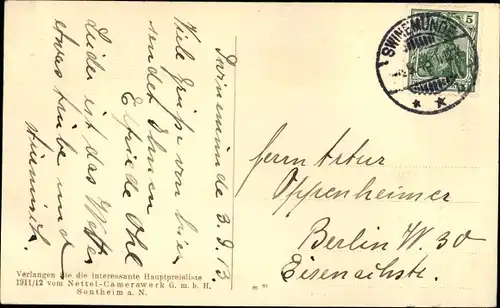 Swinemünde 3.9.13
Viele Grüße von hier
sendet Ihnen
Elfriede Ohl
Leider ist das Wetter
etwas trübe und
stürmisch.
Verlangen Sie die interessante Hauptpreisliste
1911/12 vom Nettel-Camerawerk G. m. b. H.
Sontheim a. N.
SWINEMÜNDE
5
Herrn Artur
Oppenheimer
Berlin W. 30
Eisenachstr.